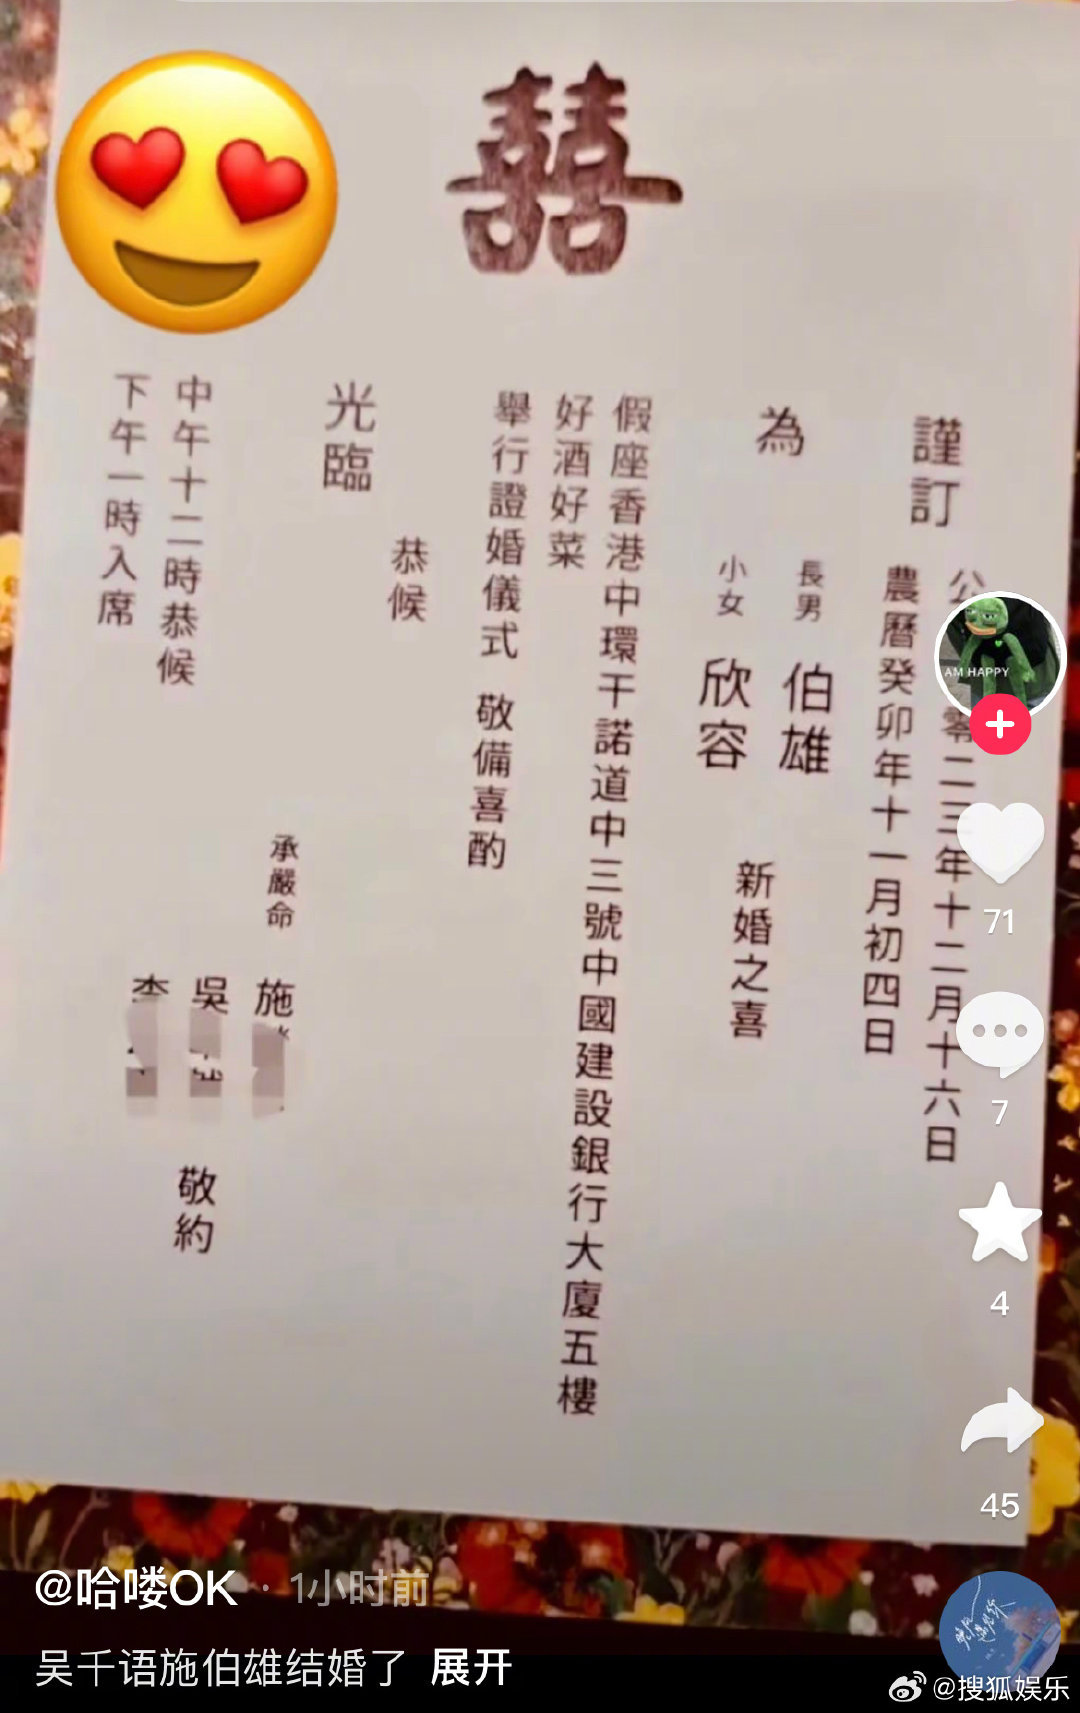 囍
謹訂
公
零二三年十二月十六日
農曆癸卯年十一月初四日
為
長男 伯雄
小女 欣容
新婚之喜
假座香港中環干諾道中三號中國建設銀行大廈五樓
好酒好菜
舉行證婚儀式 敬備喜酌
恭候
光臨
承嚴命
施
吳
李
敬約
中午十二時恭候
下午一時入席
AM HAPPY
71
7
4
45
@哈喽OK · 1小时前
吴千语施伯雄结婚了 展开
@搜狐娱乐